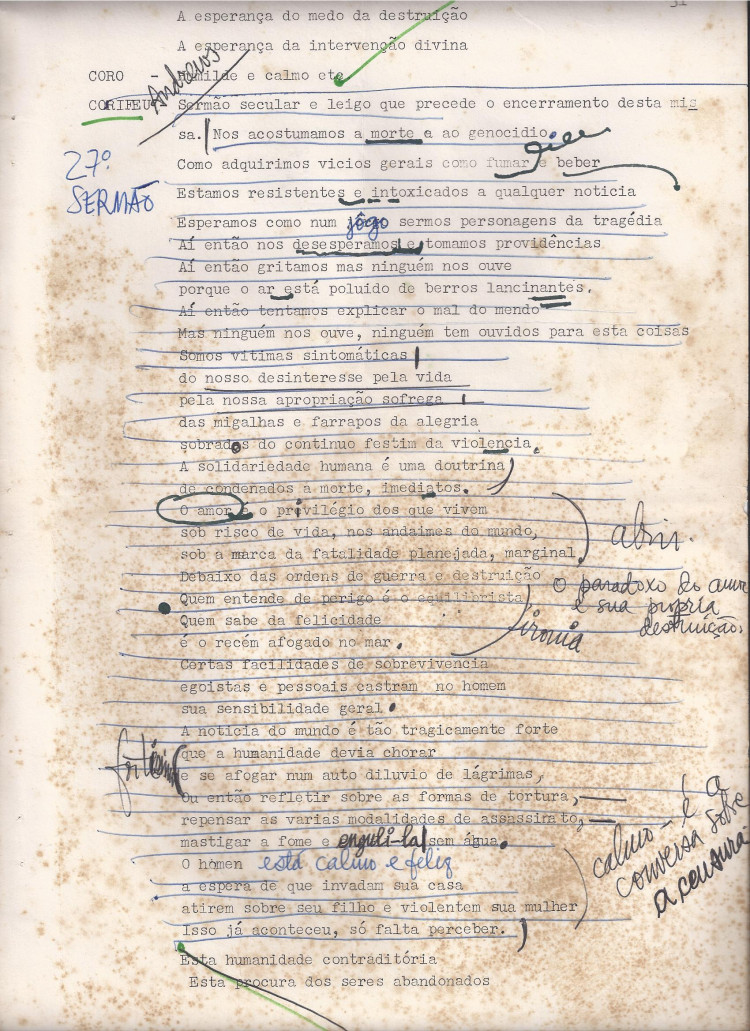 31
A esperança do medo da destruição
A esperança da intervenção divina
CORO - Humilde e calmo etc
Andrews
CORIFEU Sermão secular e leigo que precede o encerramento desta mis
sa. Nos acostumamos a morte e ao genocidio
27º
SERMÃO
Como adquirimos vicios gerais como fumar e beber
Estamos resistentes e intoxicados a qualquer noticia
Esperamos como num jôgo sermos personagens da tragédia
Aí então nos desesperamos e tomamos providências
Aí então gritamos mas ninguém nos ouve
porque o ar está poluido de berros lancinantes.
Aí então tentamos explicar o mal do mendo
Mas ninguém nos ouve, ninguém tem ouvidos para esta coisas
Somos vitimas sintomáticas
do nosso desinteresse pela vida
pela nossa apropriação sofrega
das migalhas e farrapos da alegria
sobrados do continuo festim da violencia.
A solidariedade humana é uma doutrina
de condenados a morte, imediatos.
O amor é o privilégio dos que vivem
sob risco de vida, nos andaimes do mundo,
abrir.
sob a marca da fatalidade planejada, marginal
Debaixo das ordens de guerra e destruição
O paradoxo do amor
é sua propria
destruição.
Quem entende de perigo é o equilibrista
Quem sabe da felicidade
ironia
é o recém afogado no mar.
Certas facilidades de sobrevivencia
egoistas e pessoais castram no homem
sua sensibilidade geral.
A noticia do mundo é tão tragicamente forte
que a humanidade devia chorar
e se afogar num auto diluvio de lágrimas,
ou então refletir sobre as formas de tortura,
repensar as varias modalidades de assassinato,
mastigar a fome e enguli-la sem água.
O hómen está calmo e feliz
calmo - é a
conversa sobre
a censura
a espera de que invadam sua casa
atirem sobre seu filho e violentem sua mulher
Isso já aconteceu, só falta perceber.
Esta humanidade contraditória
Esta procura dos seres abandonados